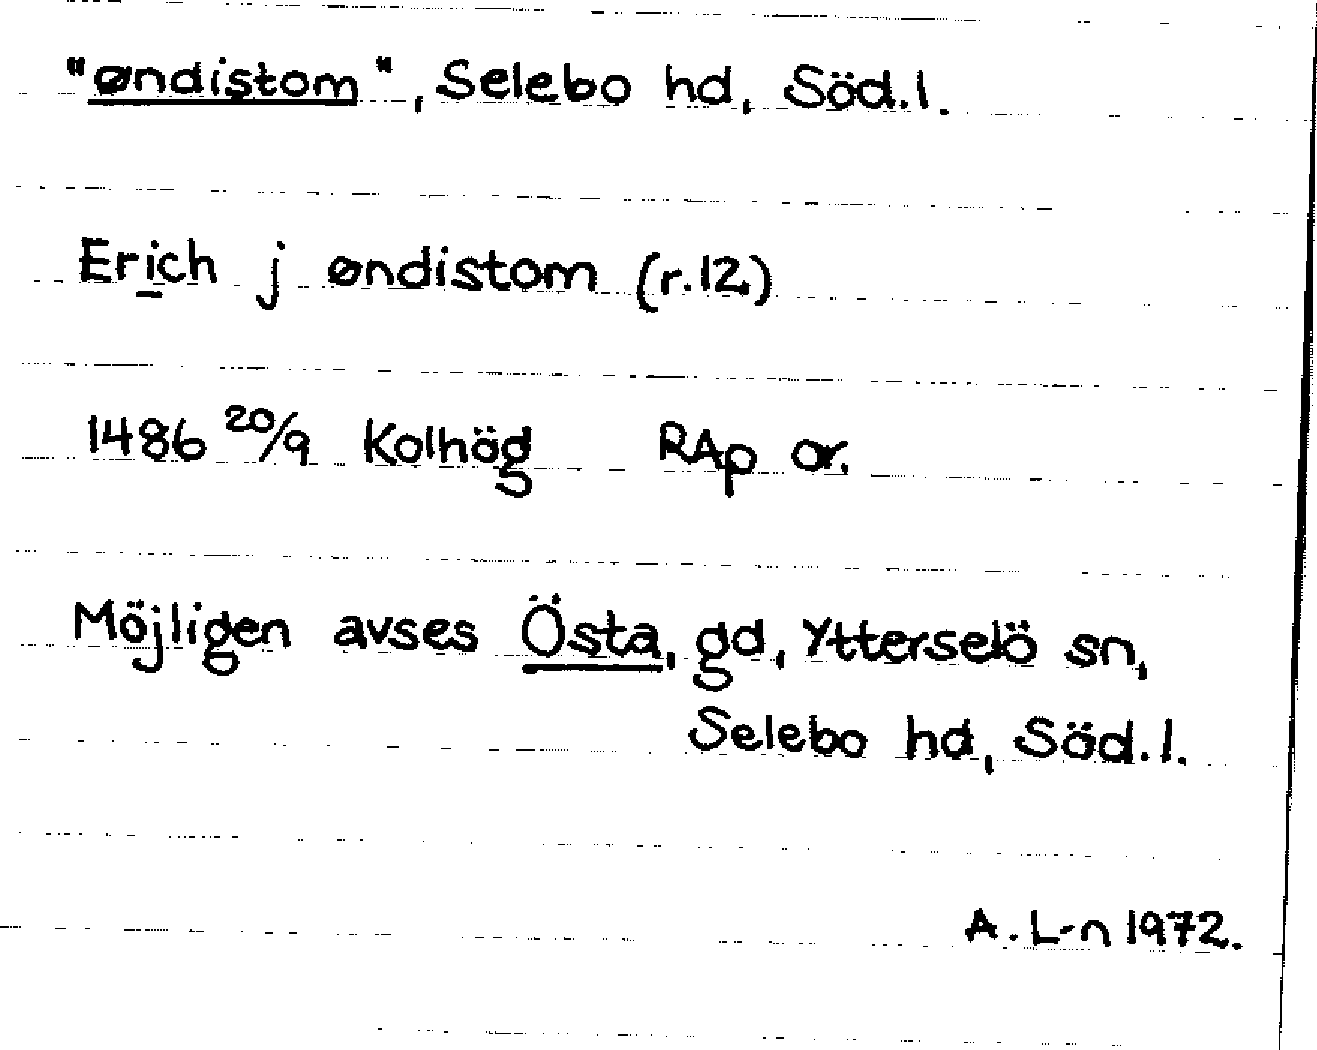 "øndistom", Selebo hd, Söd.l.
Erich j øndistom (r.12)
1486 20/9 Kolhög RAp or.
Möjligen avses Östa, gd, Ytterselö sn,
Selebo hd, Söd.l.
A. L-n 1972.